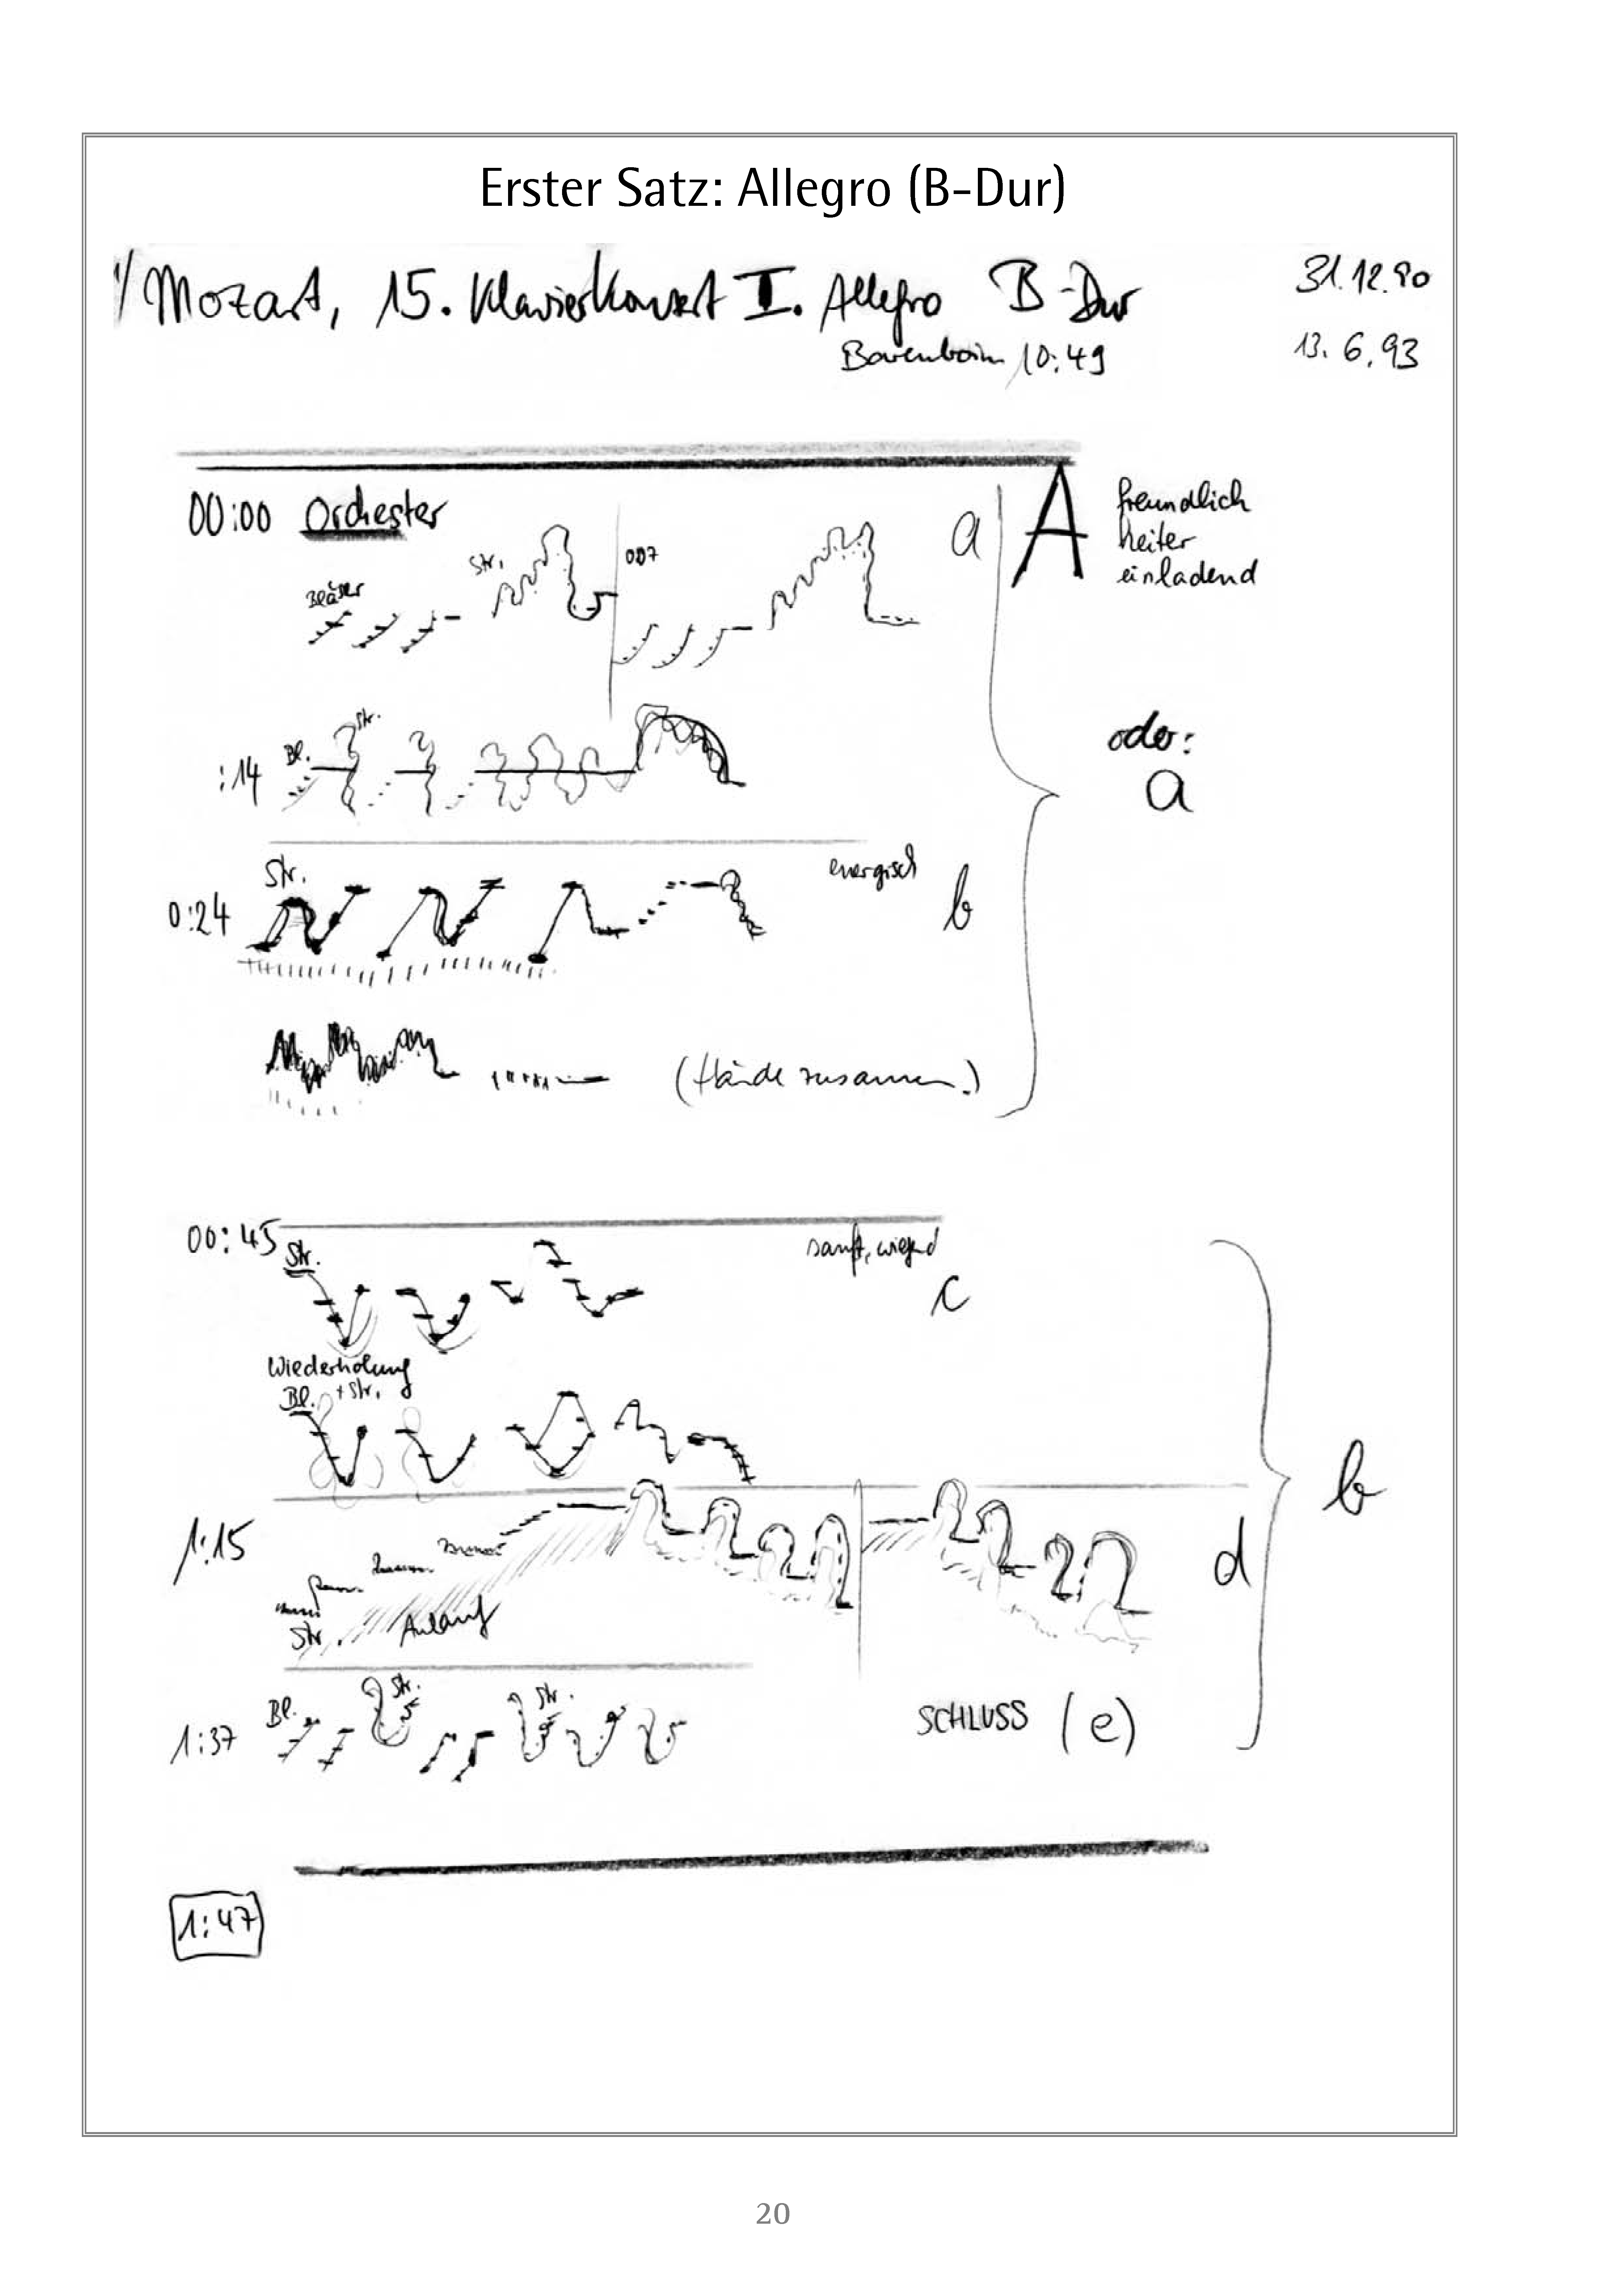 Erster Satz: Allegro (B-Dur)
1/ Mozart, 15. Klavierkonzert I. Allegro B-Dur 31.12.90
Barenboim 10:49 13.6.93
00:00 Orchester a A freundlich
heiter
einladend
Bläser Str. 007
oder:
a
:14 Bl. Str.
Str. energisch
0:24 b
(Hände zusammen)
00:45 Str. sanft, wiegend
c
Wiederholung
Bl. + Str.
b
1:15 d
Str. Anlauf
1:37 Bl. Str. Str. SCHLUSS (e)
1:47
20